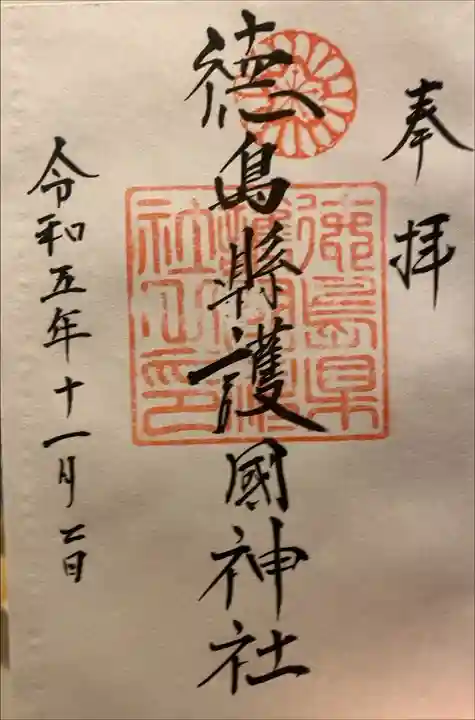 奉拝
徳島縣護國神社
徳島県護國神社之印
令和五年十一月二日